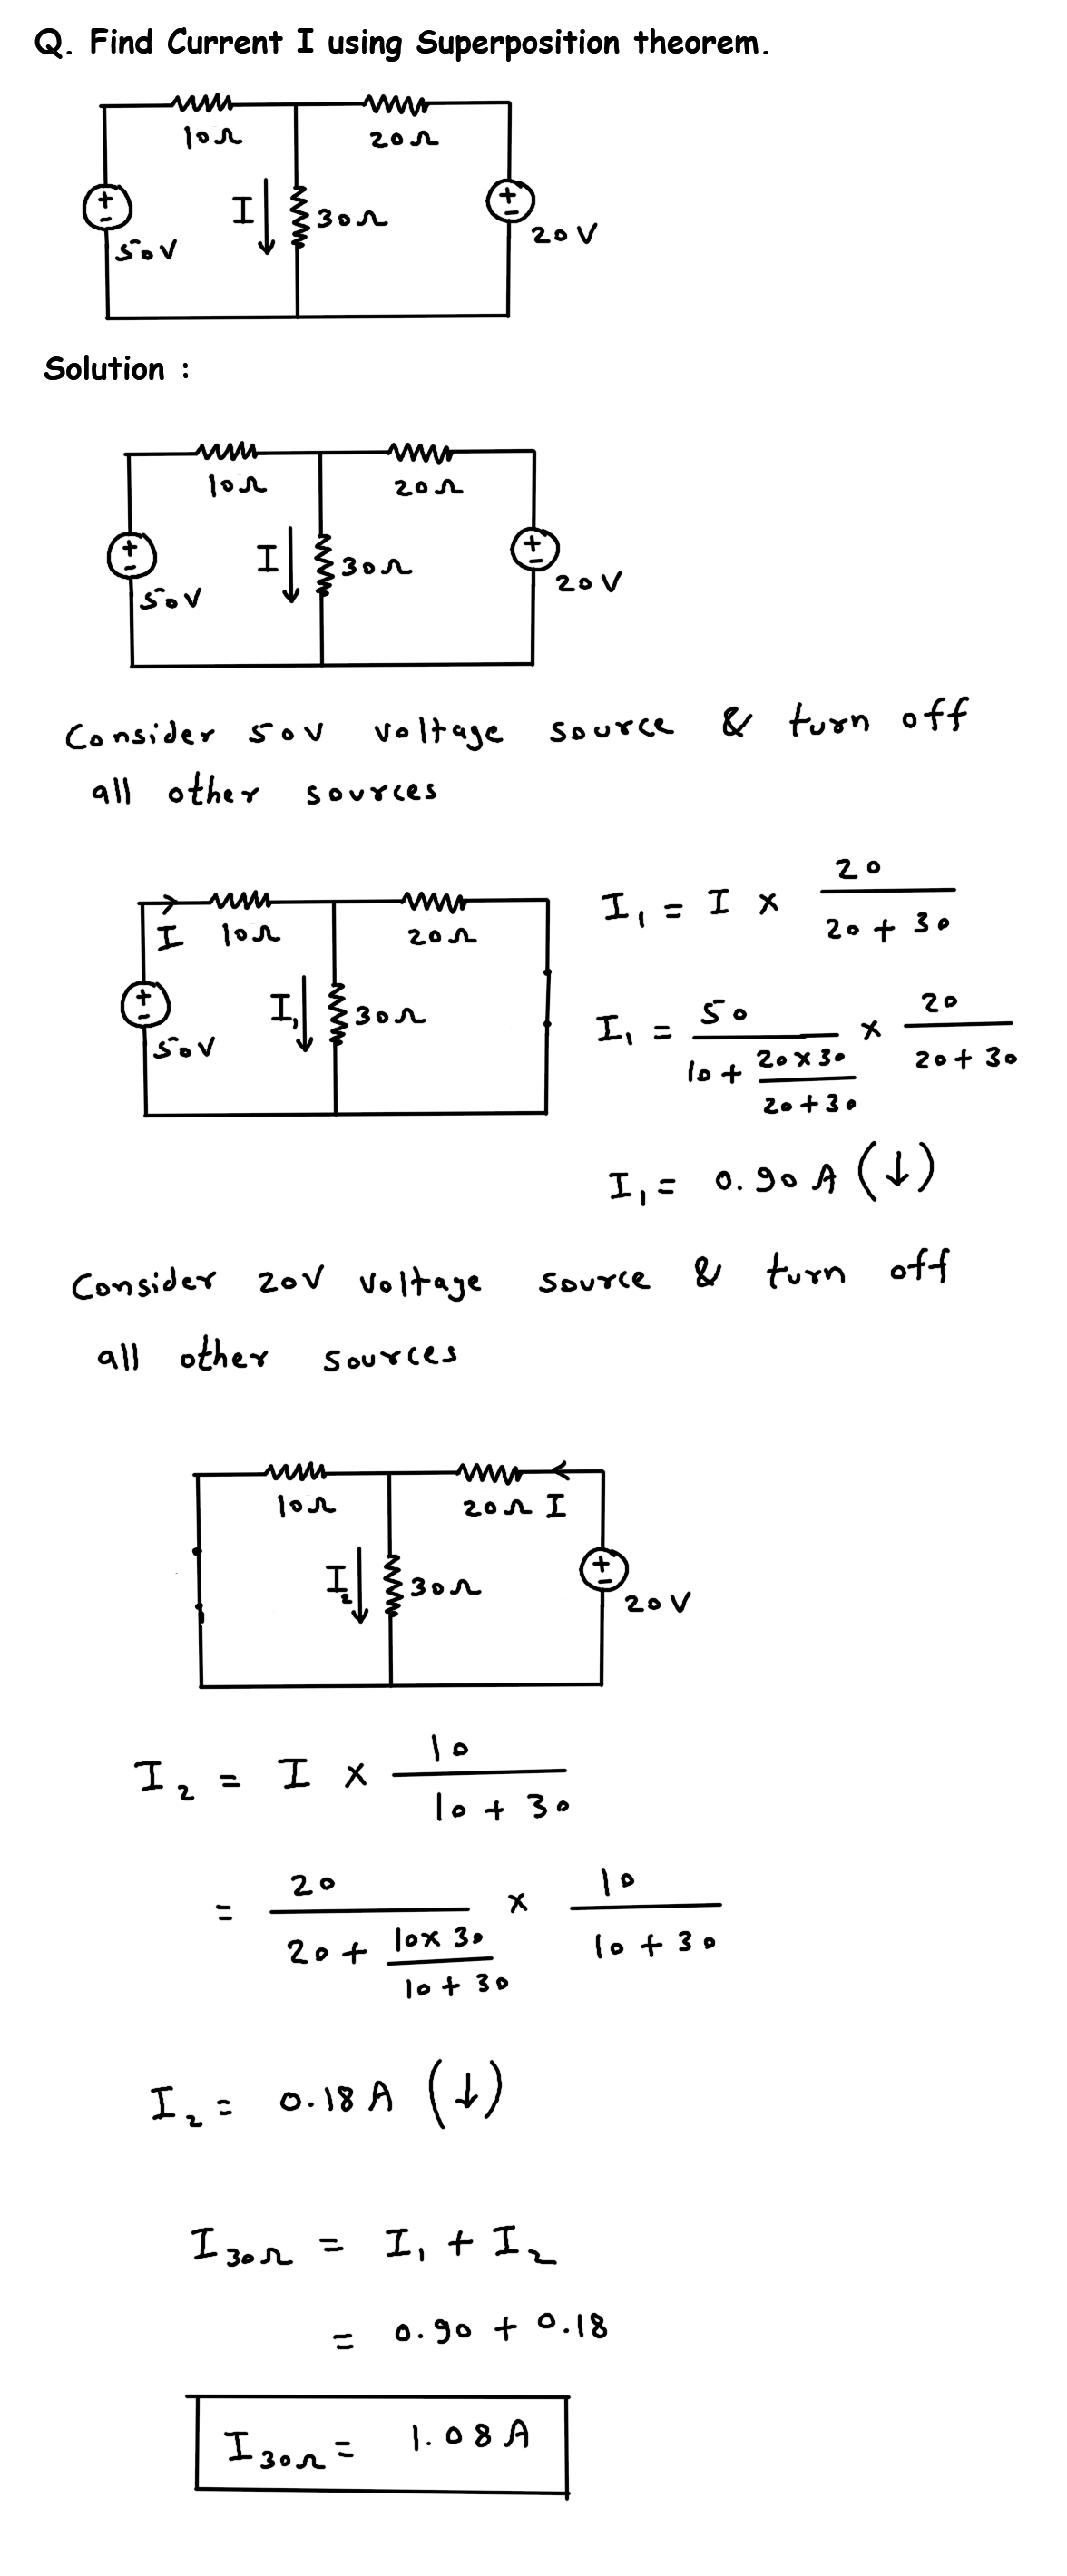 Q. Find Current I using Superposition theorem.
10Ω 20Ω
+ - 50V I 30Ω + - 20V
Solution :
10Ω 20Ω
+ - 50V I 30Ω + - 20V
Consider 50V voltage source & turn off
all other sources
I 10Ω 20Ω
+ - 50V I₁ 30Ω
I₁ = I × 20 / (20 + 30)
I₁ = 50 / (10 + (20×30 / (20+30))) × 20 / (20+30)
I₁ = 0.90 A (↓)
Consider 20V voltage source & turn off
all other sources
10Ω 20Ω I
I₂ 30Ω + - 20V
I₂ = I × 10 / (10 + 30)
= 20 / (20 + (10×30 / (10+30))) × 10 / (10+30)
I₂ = 0.18 A (↓)
I₃₀Ω = I₁ + I₂
= 0.90 + 0.18
I₃₀Ω = 1.08 A